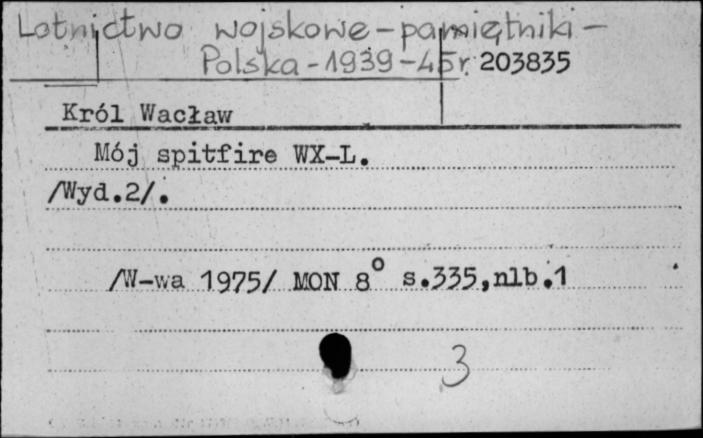 Lotnictwo wojskowe - pamiętniki -
Polska - 1939-45r. 203835
Król Wacław
Mój spitfire WX-L.
/Wyd.2/.
/W-wa 1975/ MON 8° s.335,nlb.1
3